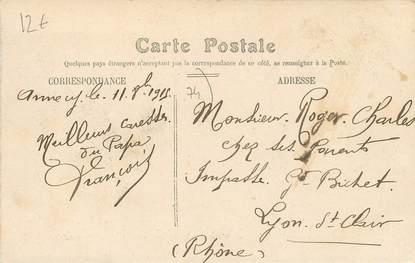 12€
Carte Postale
Quelques pays étrangers n'acceptant pas la correspondance de ce côté, se renseigner à la Poste.
CORRESPONDANCE
ADRESSE
74
Annecy le 11.
Meilleurs caresses
du Papa
François
Monsieur Roger Charles
chez ses parents
Impasse. Gd Bichet.
Lyon St Clair
(Rhône)